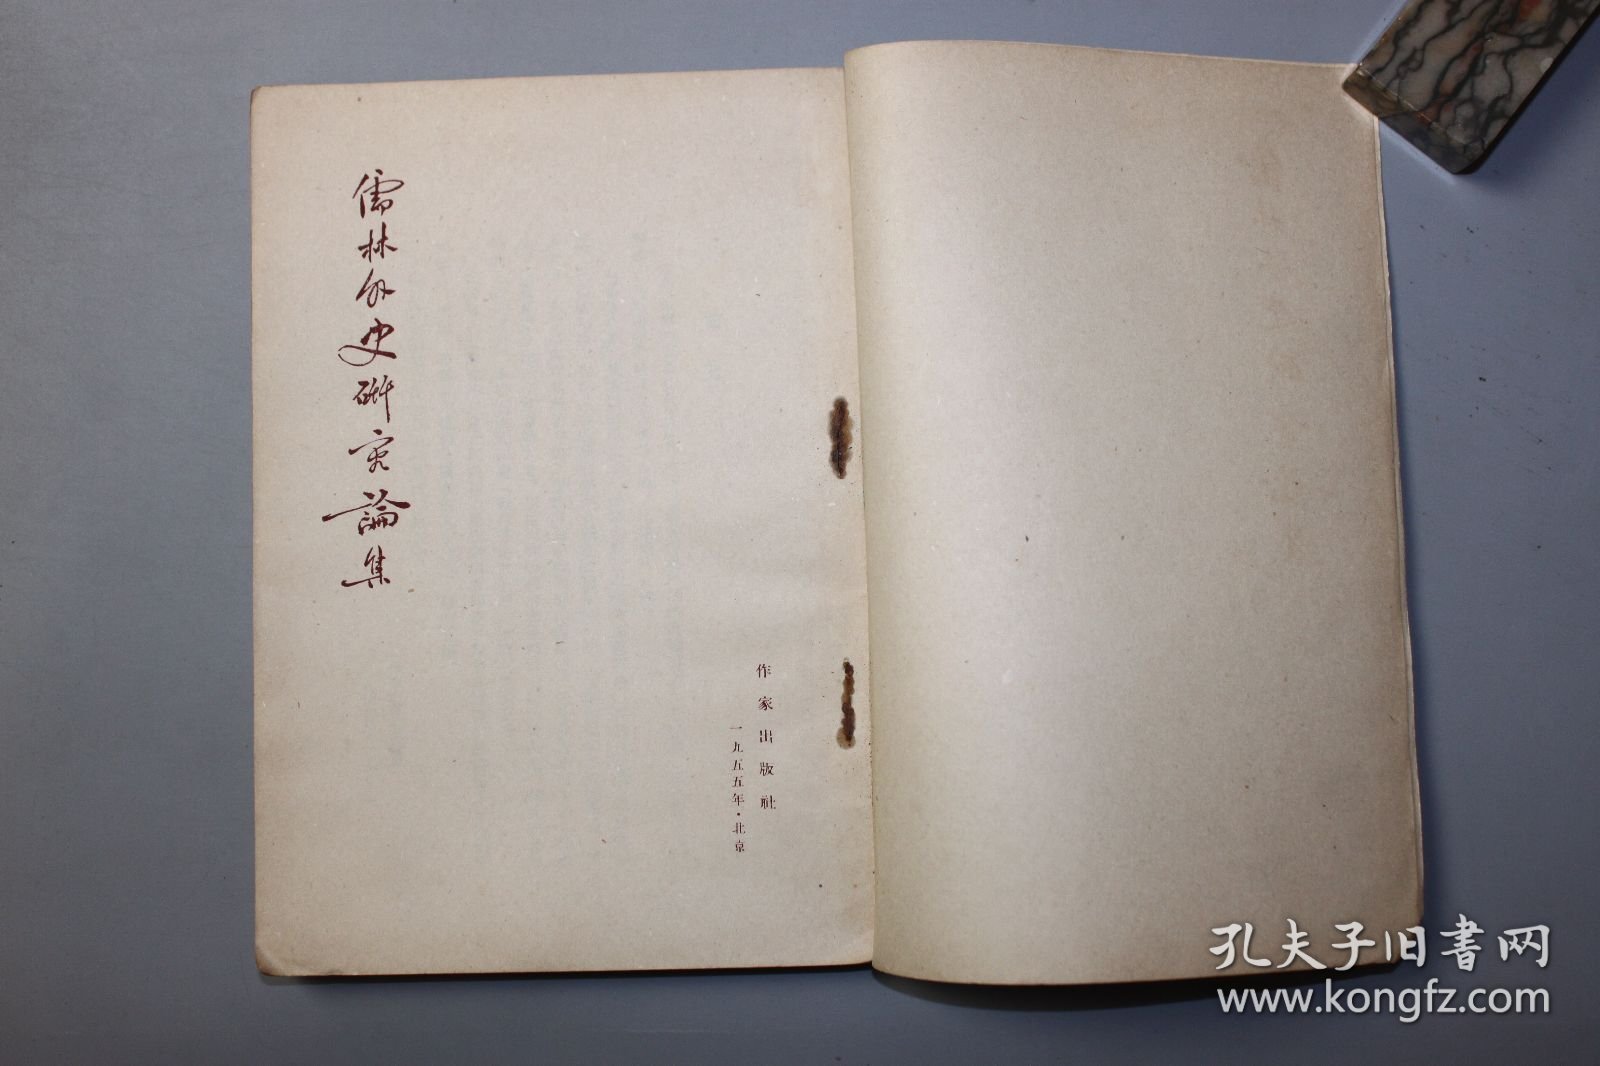 儒林外史研究論集
作家出版社
一九五五年·北京
孔夫子旧書网
www.kongfz.com